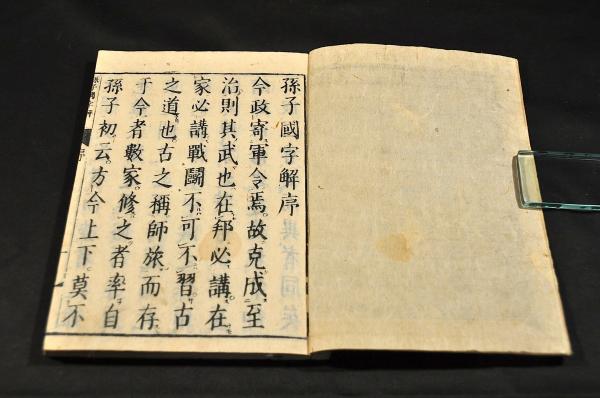 孫子國字解序
今政寄軍令焉故克成至
治則其武也在邦必講在
家必講戰鬪不可不習古
之道也古之稱師旅而存
于今者數家修之者率自
孫子初云方今上下莫不
序